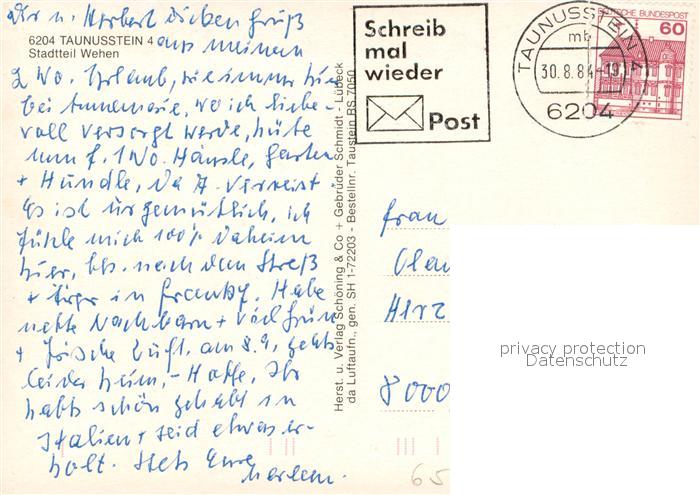 Dir u. Herbert dicken Gruß
6204 TAUNUSSTEIN 4
Stadtteil Wehen
aus meinem
2 Wo. Urlaub, wie immer hier
bei Annemarie, wo ich liebe-
voll versorgt werde, hüte
nun f. 1 Wo. Häusle, Garten
+ Hundle, da A. verreist.
Es ist urgemütlich, ich
fühle mich 100% daheim
hier, bes. nach dem Streß
+ Ärger in Frankf. Habe
nette Nachbarn + viel Grün
+ frische Luft. am 8.9. geht's
leider heim, - Hoffe, Ihr
habts schön gehabt in
Italien + seid etwas er-
holt. Stets Eure
Herst. u. Verlag Schöning & Co + Gebrüder Schmidt - Lübeck
da Luftaufn., gen. SH 1-72203 - Bestellnr. Taustein BS 7050
Schreib
mal
wieder
Post
TAUNUSSTEIN 4
mb
30.8.84-19
6204
DEUTSCHE BUNDESPOST
60
Frau
Herz
8000
privacy protection
Datenschutz
65